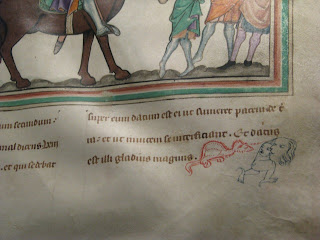 um secundum
mal dicens. Ueni
et qui sedebat
super eum datum est ei ut sumeret pacem de
et ut inuicem se interficiant. Et datus
est illi gladius magnus.